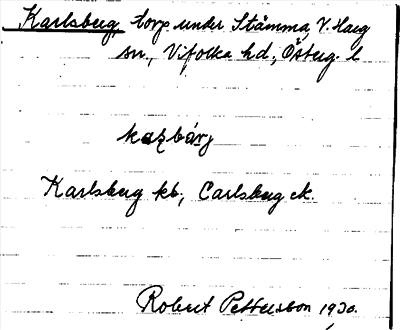 Karlsberg, torp under Stämma, V. Harg
sn., Vifolka hd., Österg. l
kaʂbárj
Karlsberg kb, Carlsberg ek.
Robert Pettersson 1930.